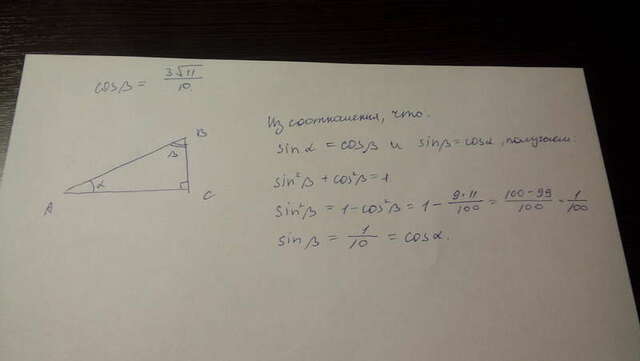 cosβ = 3√11/10
B
β
α
A
C
Из соотношения, что.
sinα = cosβ и sinβ = cosα, получаем
sin²β + cos²β = 1
sin²β = 1 - cos²β = 1 - 9·11/100 = 100-99/100 = 1/100
sinβ = 1/10 = cosα.